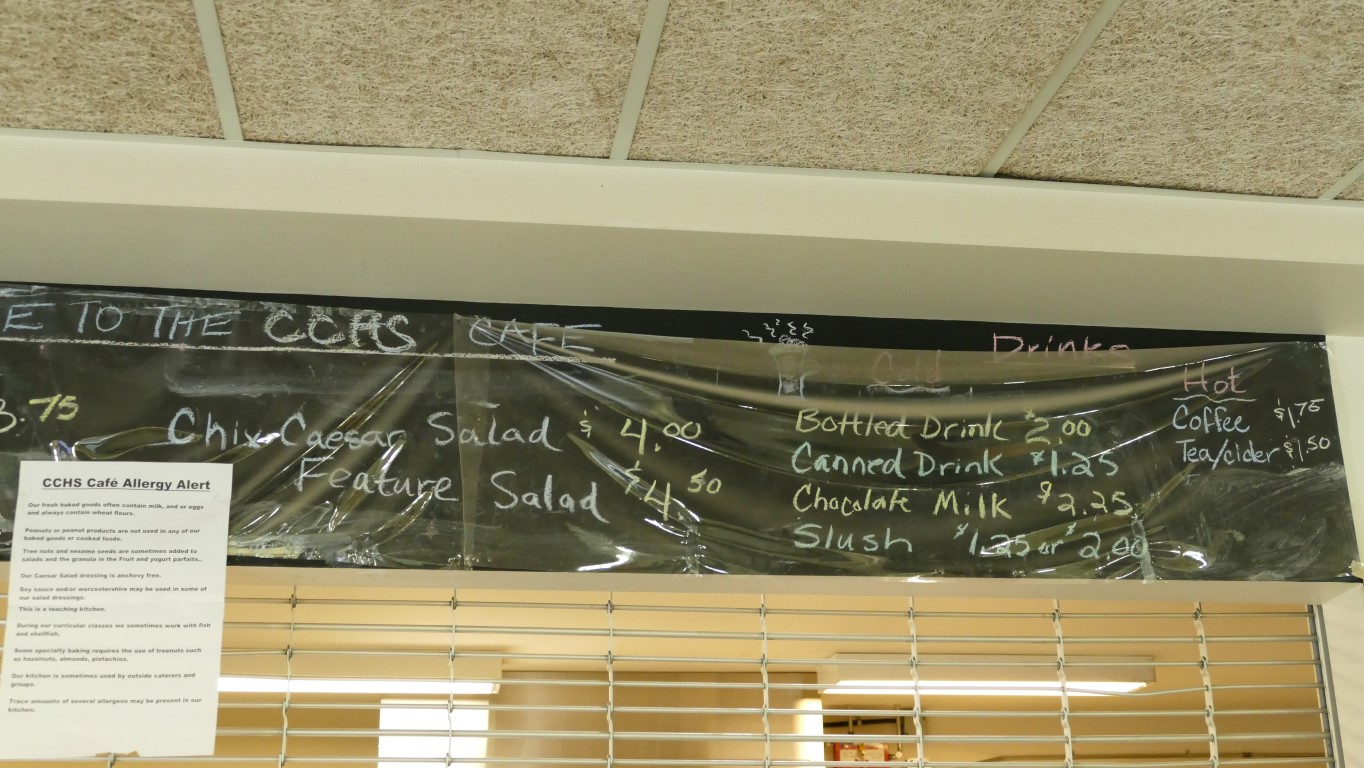 E TO THE CCHS CAFE
Drinks
Cold
Hot
3.75
Chix Caesar Salad $4.00
Feature Salad $4.50
Bottled Drink $2.00
Canned Drink $1.25
Chocolate Milk $2.25
Slush $1.25 or $2.00
Coffee $1.75
Tea/cider $1.50
CCHS Café Allergy Alert
Our fresh baked goods often contain milk, and or eggs
and always contain wheat flours.
Peanuts or peanut products are not used in any of our
baked goods or cooked foods.
Tree nuts and sesame seeds are sometimes added to
salads and the granola in the Fruit and yogurt parfaits..
Our Caesar Salad dressing is anchovy free.
Soy sauce and/or worcestershire may be used in some of
our salad dressings.
This is a teaching kitchen.
During our curricular classes we sometimes work with fish
and shellfish.
Some specialty baking requires the use of treenuts such
as hazelnuts, almonds, pistachios.
Our kitchen is sometimes used by outside caterers and
groups.
Trace amounts of several allergens may be present in our
kitchen.